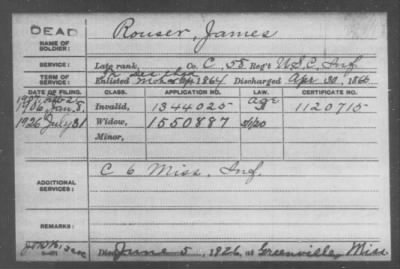 DEAD
NAME OF SOLDIER:
Rouser, James
SERVICE:
Late rank, Co. C, 55 Reg't U.S.C. Inf.
TERM OF SERVICE:
Enlisted 1864 Discharged Apr 30, 186
DATE OF FILING. CLASS. APPLICATION NO. LAW. CERTIFICATE NO.
Invalid, 1344025 age 1120715
1926 July 31 Widow, 1550887
Minor,
ADDITIONAL SERVICES:
C 6 Miss. Inf.
REMARKS:
Died June 5, 1926, at Greenville, Miss